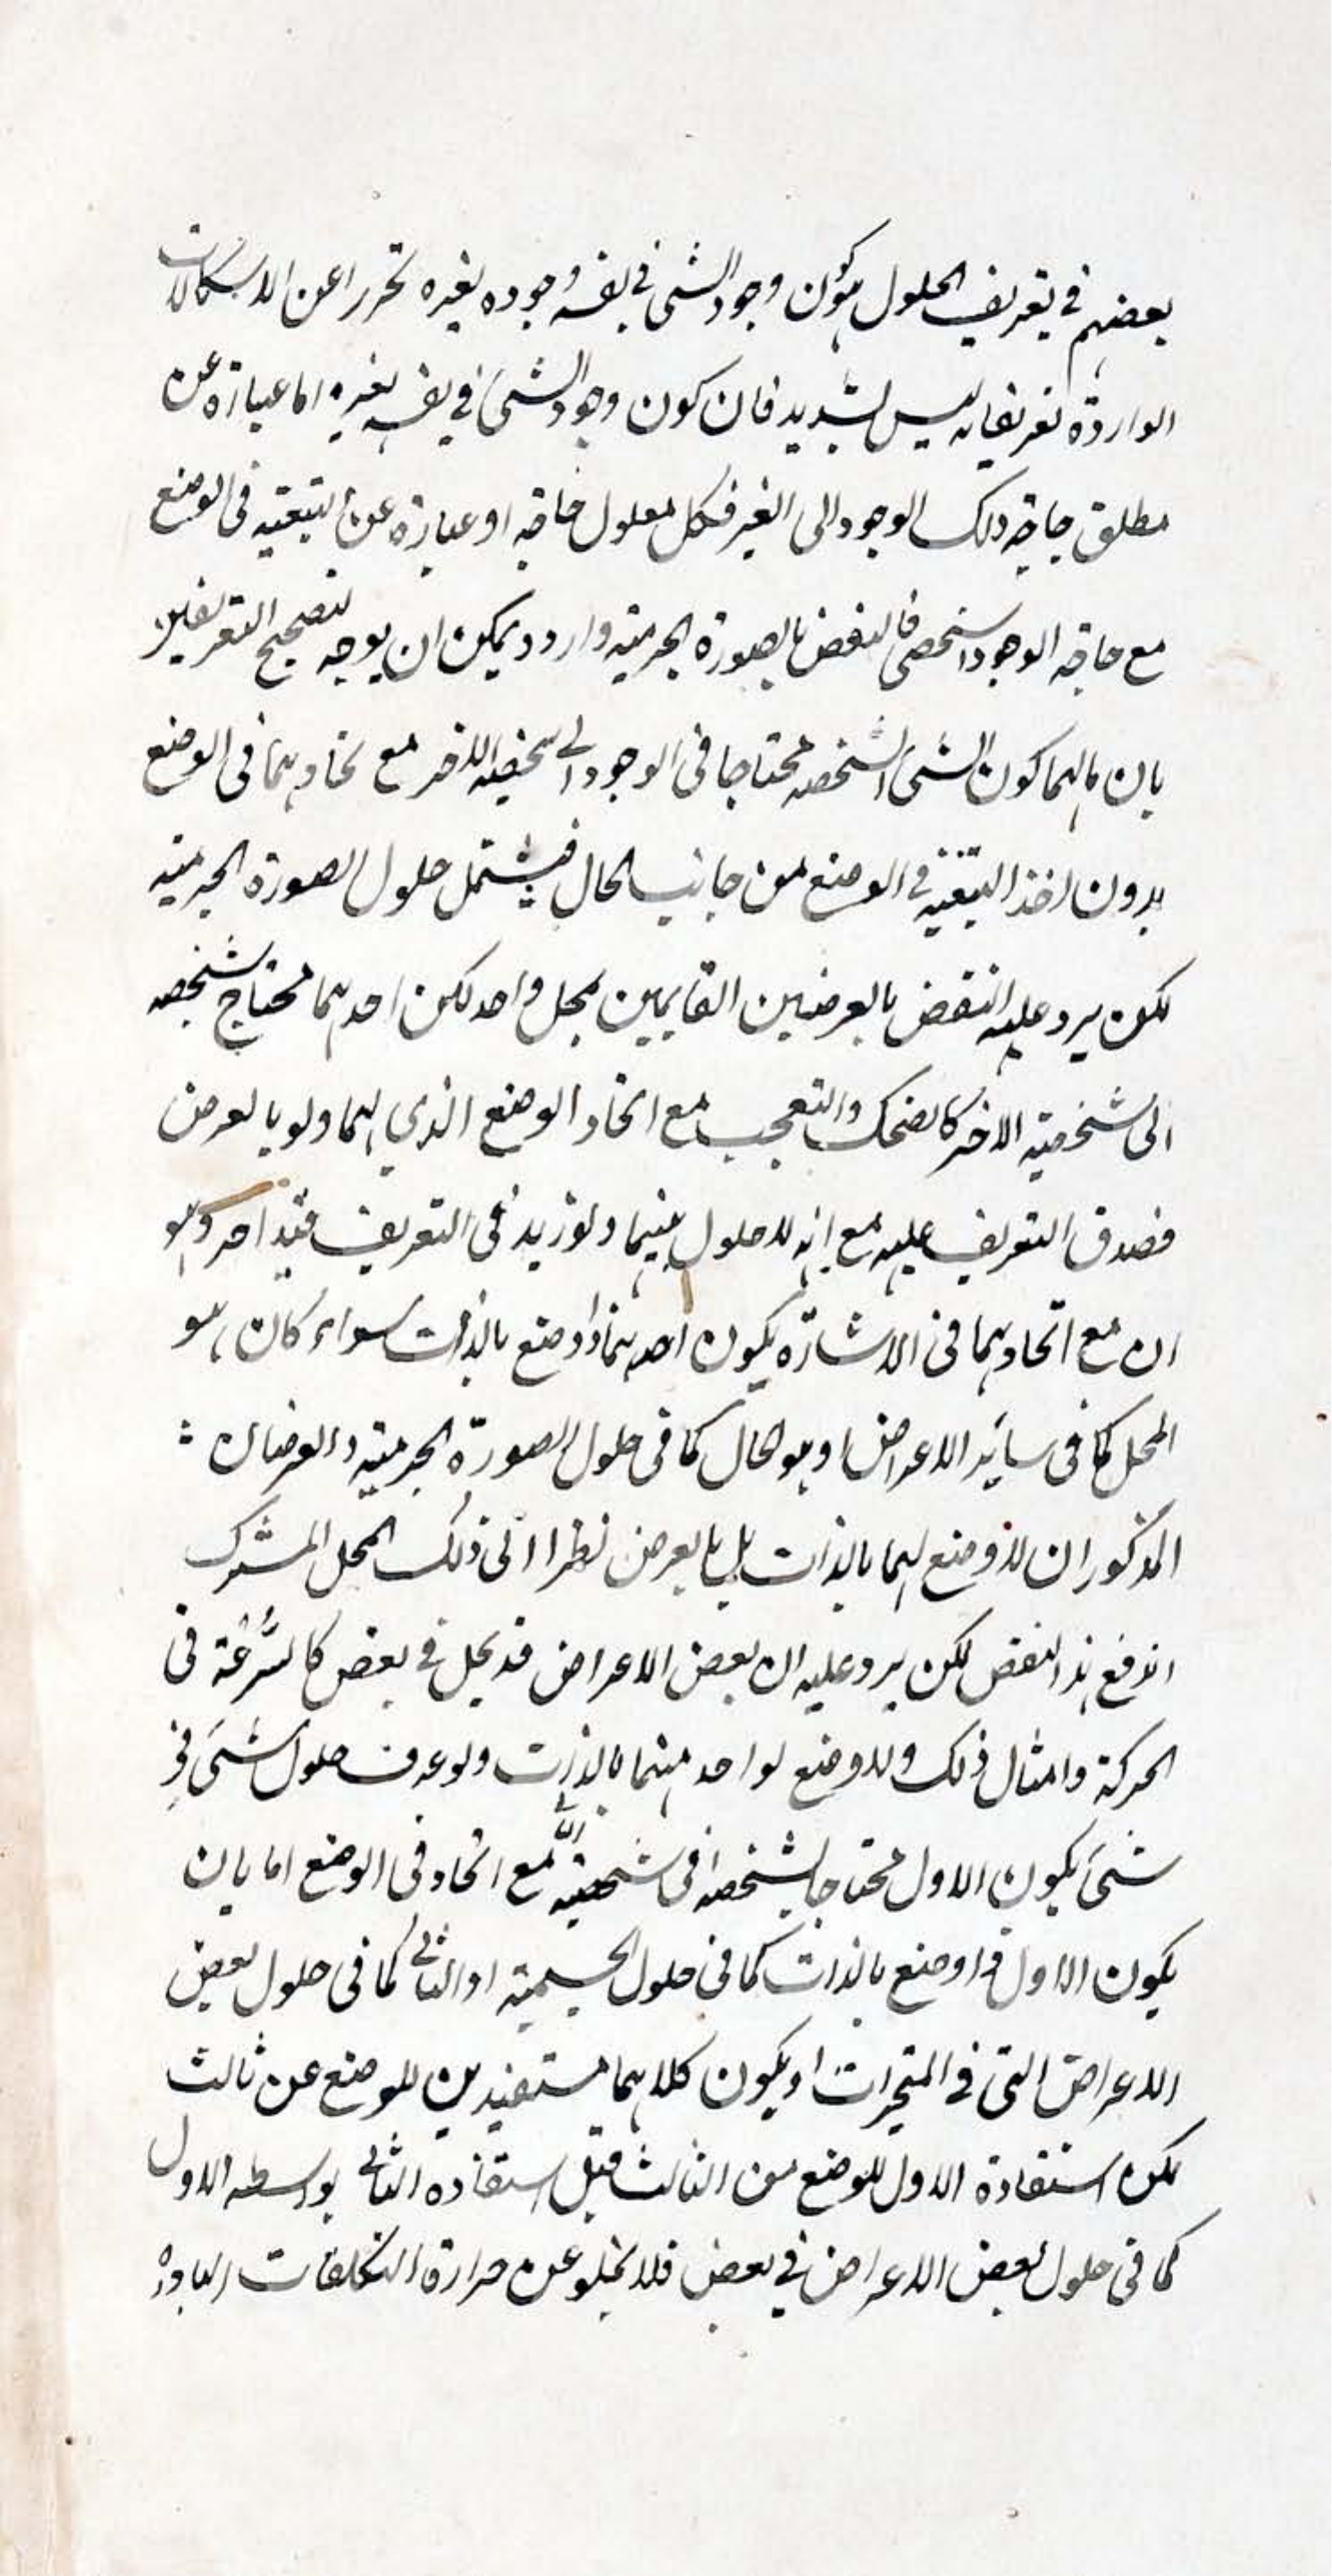 بعضهم في تعريف الحلول هو كون وجود الشي في نفسه وجوده لغيره تحررا عن الاشكالات
الواردة تعريفاته ليس بسديد فان كون وجود الشئ في نفسه لغيره اما عبارة عن
مطلق حاجة ذلك الوجود الى الغير فكل معلول حاجة او عبارة عن تبعيته فى الوضع
مع حاجة الوجود الشخصى فالنقض بالصورة الجرمية وارد ويمكن ان يوجه لتصحيح التعريفين
بان مالهما كون الشئ الشخصه محتاجا فى الوجود الى شخصية الاخر مع اتحادهما فى الوضع
بدون اخذ التبعية فى الوضع من جانب الحال فيشتمل حلول الصورة الجرمية
لكن يرد عليه النقض بالعرضين القايمين بمحل واحد لكن احدهما محتاج شخصه
الى شخصية الاخر كالضحك والتعجب مع اتحاد الوضع الذي لهما ولو بالعرض
فصدق التعريف عليه مع انه لا حلول بينهما ولو زيد فى التعريف قيد اخر وهو
ان مع اتحادهما فى الاشارة يكون احدهما ذا وضع بالذات سواء كان هو
المحل كما فى سائر الاعراض او هو الحال كما فى حلول الصورة الجرمية والعرضان
المذكوران لا وضع لهما بالذات بل بالعرض نظرا الى ذلك المحل المشترك
اندفع هذا النقض لكن يرد عليه ان بعض الاعراض قد يحل في بعض كالسُّرعَة فى
الحركة وامثال ذلك ولا وضع لواحد منهما بالذات ولو عرف حلول شئ في
شئ بكون الاول محتاجا بشخصه فى شخصيته الى مع اتحاد فى الوضع اما بان
يكون الاول ذا وضع بالذات كما فى حلول الجسمية او الثانى كما فى حلول بعض
الاعراض التى فى المتحيزات او يكون كلاهما مستفيدين للوضع عن ثالث
لكن استفادة الاول للوضع من الثالث قبل استفادة الثانى بواسطه الاول
كما فى حلول بعض الاعراض في بعض فلا يخلو عن حرارة التكلفات الباردة